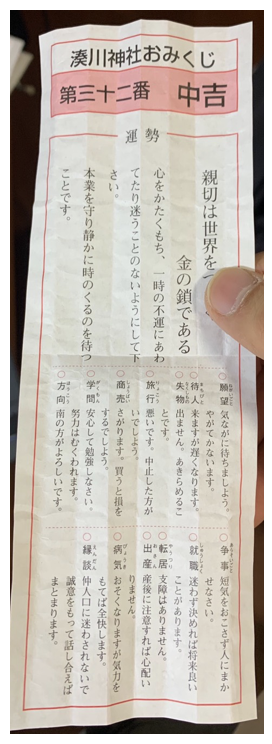 湊川神社おみくじ
第三十二番 中吉
運勢
親切は世界を
金の鎖である
心をかたくもち、一時の不運にあわ
てたり迷うことのないようにして下
さい。
本業を守り静かに時のくるのを待つ
ことです。
○願望 気ながに待ちましょう。
やがてかないます。
○待人 来ますが遅くなります。
○失物 出ません。あきらめるこ
とです。
○旅行 悪いです。中止した方が
いいでしょう。
○商売 さがります。買うと損を
するでしょう。
○学問 安心して勉強しなさい。
努力はむくわれます。
○方向 南の方がよろしいです。
○争事 短気をおこさず人にまか
せなさい。
○就職 迷わず決めれば将来良い
ことがあります。
○転居 支障はありません。
○出産 産後に注意すれば心配い
りません。
○病気 おそくなりますが気力を
もてば全快します。
○縁談 仲人口に迷わされないで
誠意をもって話し合えば
まとまります。